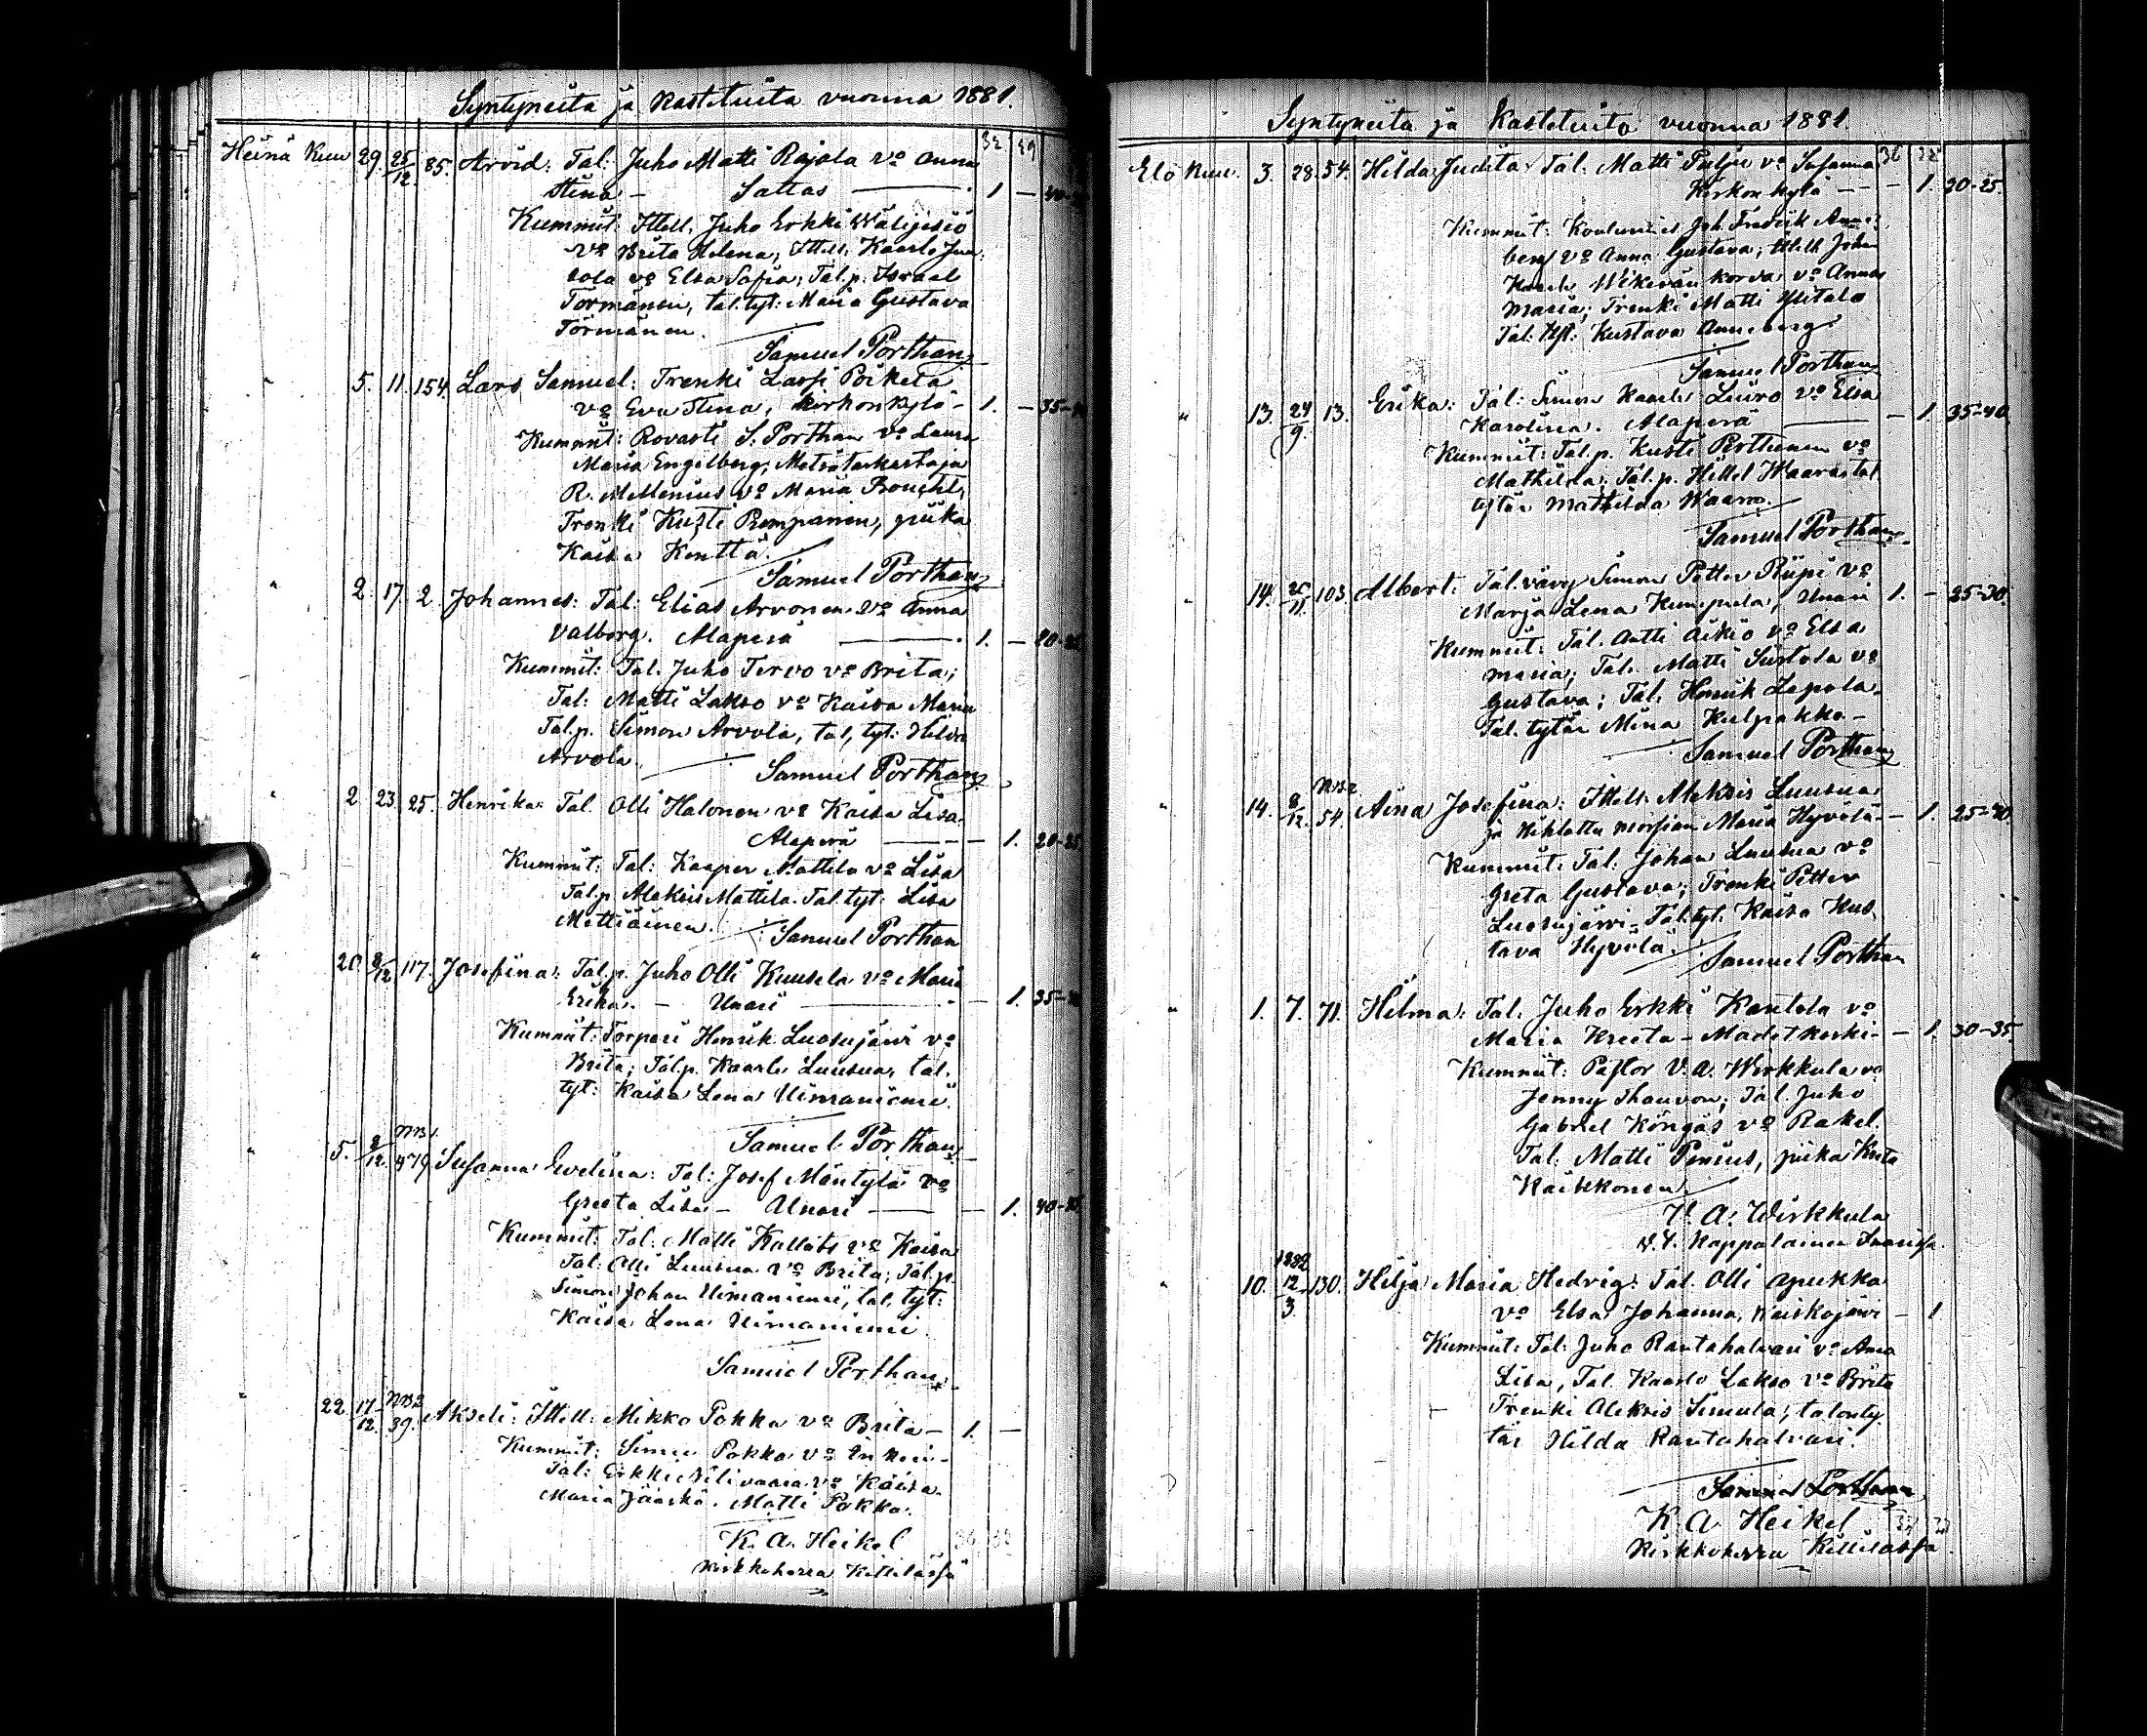 Syntyneitä ja Kastetuita vuonna 1881.
32 29
Heinä Kuu 29. 25/12. 85. Arvid: Tal: Juho Matti Rajala vo Anna
Stina - Sattas 1 -
Kummit: Ittell. Juho Erkki
vo Brita Helena, Ittell. Kaarlo
vo Elsa Sofia, Tal.p. Israel
Törmänen, tal. tyt: Maria Gustava
Törmänen.
Samuel Porthan
" 5. 11. 154. Lars Samuel: Trenki Lassi Poiketa
vo Eva Stina, Kirkonkylä - 1. - 35-
Kummit: Rovasti S. Porthan vo Laura
Maria Engelberg; Metsätarkastaja
R. Mellenius vo Maria
Trenki Kusti Pumpanen, piika
Kaisa Kenttä.
Samuel Porthan
" 2. 17. 2. Johannes: Tal: Elias Arvonen vo Anna
Valborg. Alaperä 1. - 20-25
Kummit: Tal. Juho Tervo vo Brita;
Tal: Matti Lakso vo Kaisa Maria
Tal.p. Simon Arvola, tal. tyt: Hilda
Arvola.
Samuel Porthan
" 2. 23. 25. Henrika: Tal. Olli Halonen vo Kaisa Lisa.
Alaperä - 1. 20-25
Kummit: Tal: Kasper Mattila vo Lisa
Tal.p. Aleksis Mattila. Tal. tyt: Lisa
Mettiäinen.
Samuel Porthan
" 20. 8/12. 117. Josefina: Tal.p. Juho Olli Kuusela vo Maria
Erika. - Unari - 1. 35-
Kummit: Torpari Henrik Luosujärvi vo
Brita; Tal.p. Kaarlo Luusua, tal.
tyt: Kaisa Lena Uimaniemi.
Samuel Porthan
" 5. 8/12. NB1. 479. Susanna Evelina: Tal: Josef Mäntylä vo
Greeta Lisa - Unari - 1. 40-
Kummit: Tal: Matti Kallato vo Kaisa
Tal: Olli Luusua vo Brita; Tal.p.
Simon Johan Uimaniemi, tal. tyt:
Kaisa Lena Uimaniemi.
Samuel Porthan
" 22. 17/12. NB2 39. Akseli: Ittell: Mikko Pokka vo Brita - 1. -
Kummit: Simu Pokka vo
Tal: Erkki Nilivaara vo Kaisa.
Maria Jääskö. Matti Pokka.
K. A. Heikel
Kirkkoherra Kittilässä
Syntyneitä ja Kastetuita vuonna 1881.
Elo Kuu. 3. 28. 54. Hilda Judita: Tal: Matti Pulju vo Susanna
Kirkon kylä - - 1. 20-25.
Kummit: Koulumies Joh. Fredrik Anne
berg vo Anna Gustava; Ittell Johan
Kaarle Wikevän korva vo Anna
Maria; Trenki Matti Ylitalo
Tal: tyt: Kustava Anneberg
Samuel Porthan
" 13. 24/9. 13. Erika: Tal: Simon Kaarle Liuro vo Elsa
Karolina. Alaperä - 1. 35-40.
Kummit: Tal.p. Kusti Perttunen vo
Mathilda; Tal.p. Hellel Waara, tal
tytär Mathilda Waara.
Samuel Porthan
" 14. 103. Albert: Tal. vävy Simon Petter Riipi vo
Marja Lena Kumpula, Unari 1. - 25-30.
Kummit: Tal. Antti Aikio vo Elsa
Maria; Tal. Matti Siirtola vo
Gustava; Tal. Henrik Lapala.
Tal. tytär Mina Kulpakko -
Samuel Porthan
" 14. 8/12. NB2 54. Aina Josefina: Ittell: Aleksis Luusua
ja Kihlattu morsian Maria Hyvölä - 1. 25-40.
Kummit: Tal: Johan Luusua vo
Greta Gustava; Trenki Petter
Luosujärvi. Tal. tyt. Kaisa Kus
tava Hyvölä.
Samuel Porthan
" 1. 7. 71. Hilma: Tal. Juho Erkki Kautola vo
Maria Kreeta - Madetkoski - - 1. 30-35.
Kummit: Pastor V. A. Wirkkula vo
Jenny Thauvon; Tal. Juho
Gabriel Köngäs vo Rakel.
Tal: Matti Pinius, piika
Kaikkonen
V. A. Wirkkula
V. t. Kappalainen
" 10. 1882 12/3. 130. Hilja Maria Hedvig: Tal. Olli Apukka
vo Elsa Johanna, - 1
Kummit: Tal: Juho Rautahalvari vo Anna
Lisa, Tal. Kaarlo Lakso vo Brita
Trenki Aleksis Simula, talonty
tär Hilda Rautahalvari.
Samuel Porthan
K. A. Heikel
Kirkkoherra Kittilässä.